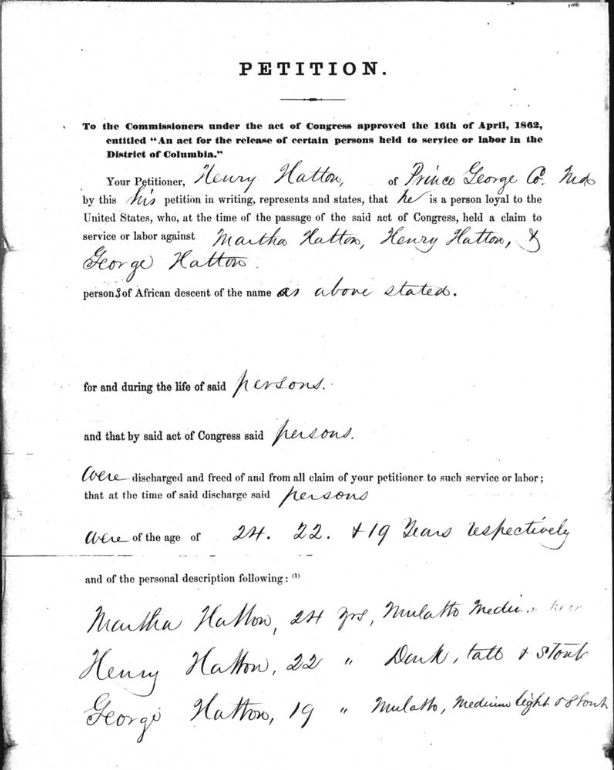 PETITION.
To the Commissioners under the act of Congress approved the 16th of April, 1862,
entitled "An act for the release of certain persons held to service or labor in the
District of Columbia."
Your Petitioner, Henry Hatton, of Prince George Co. Md
by this his petition in writing, represents and states, that he is a person loyal to the
United States, who, at the time of the passage of the said act of Congress, held a claim to
service or labor against Martha Hatton, Henry Hatton, &
George Hatton.
persons of African descent of the name as above stated.
for and during the life of said persons.
and that by said act of Congress said persons.
were discharged and freed of and from all claim of your petitioner to such service or labor;
that at the time of said discharge said persons
were of the age of 24. 22. & 19 Years respectively
and of the personal description following: (1)
Martha Hatton, 24 yrs, Mulatto
Henry Hatton, 22 " Dark, tall & stout
George Hatton, 19 " Mulatto, Medium light & stout